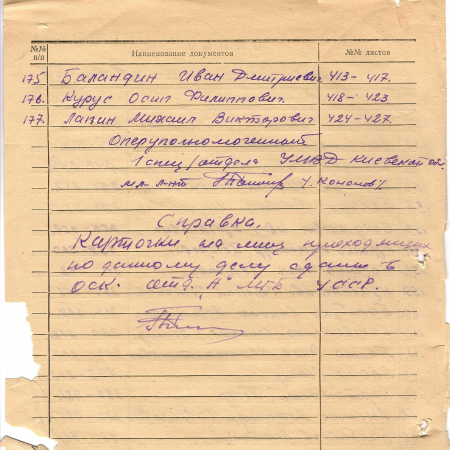 №№ п/п Наименование документов №№ листов
175 Баландин Иван Дмитриевич 413-417.
176. Курус Осип Филиппович. 418-423
177. Лапин Михаил Викторович 424-427.
Оперуполномоченный
1 спец/отдела УМВД Киевской обл.
мл. л-нт /Кононов/
Справка.
Карточки на лиц проходящих
по данному делу сданы в
отд. "А" МГБ УССР.